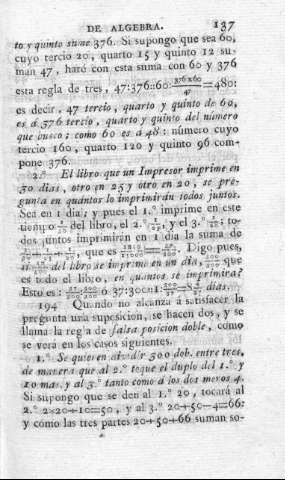 DE ALGEBRA. 137
to y quinto sume 376. Si supongo que sea 60,
cuyo tercio 20, quarto 15 y quinto 12 su-
man 47, haré con esta suma con 60 y 376
esta regla de tres, 47:376=60: 376x60/47 =480:
es decir, 47 tercio, quarto y quinto de 60,
es á 376 tercio, quarto y quinto del número
que busco; como 60 es á 48: número cuyo
tercio 160, quarto 120 y quinto 96 com-
pone 376.
2.° El libro que un Impresor imprime en
30 dias, otro en 25 y otro en 20, se pre-
gunta en quántos lo imprimirán todos juntos.
Sea en 1 dia; y pues el 1.° imprime en este
tiempo del libro, el 2.° y el 3.° to-
dos juntos imprimirán en 1 dia la suma de
que es Digo pues,
si del libro se imprime en un dia, que
es todo el libro, en quántos se imprimirá?
Esto es: ó 37:300=1: dias.
194 Quando no alcanza á satisfacer la
pregunta una suposicion, se hacen dos, y se
llama la regla de falsa posicion doble, como
se verá en los casos siguientes.
1.° Se quieren dividir 300 dob. entre tres,
de manera que al 2.° toque el duplo del 1.° y
10 mas, y al 3.° tanto como á los dos meros 4.
Si supongo que se den al 1.° 20, tocará al
2.° 2x20+10=50, y al 3.° 20+50-4=66:
y como las tres partes 20+50+66 suman so-